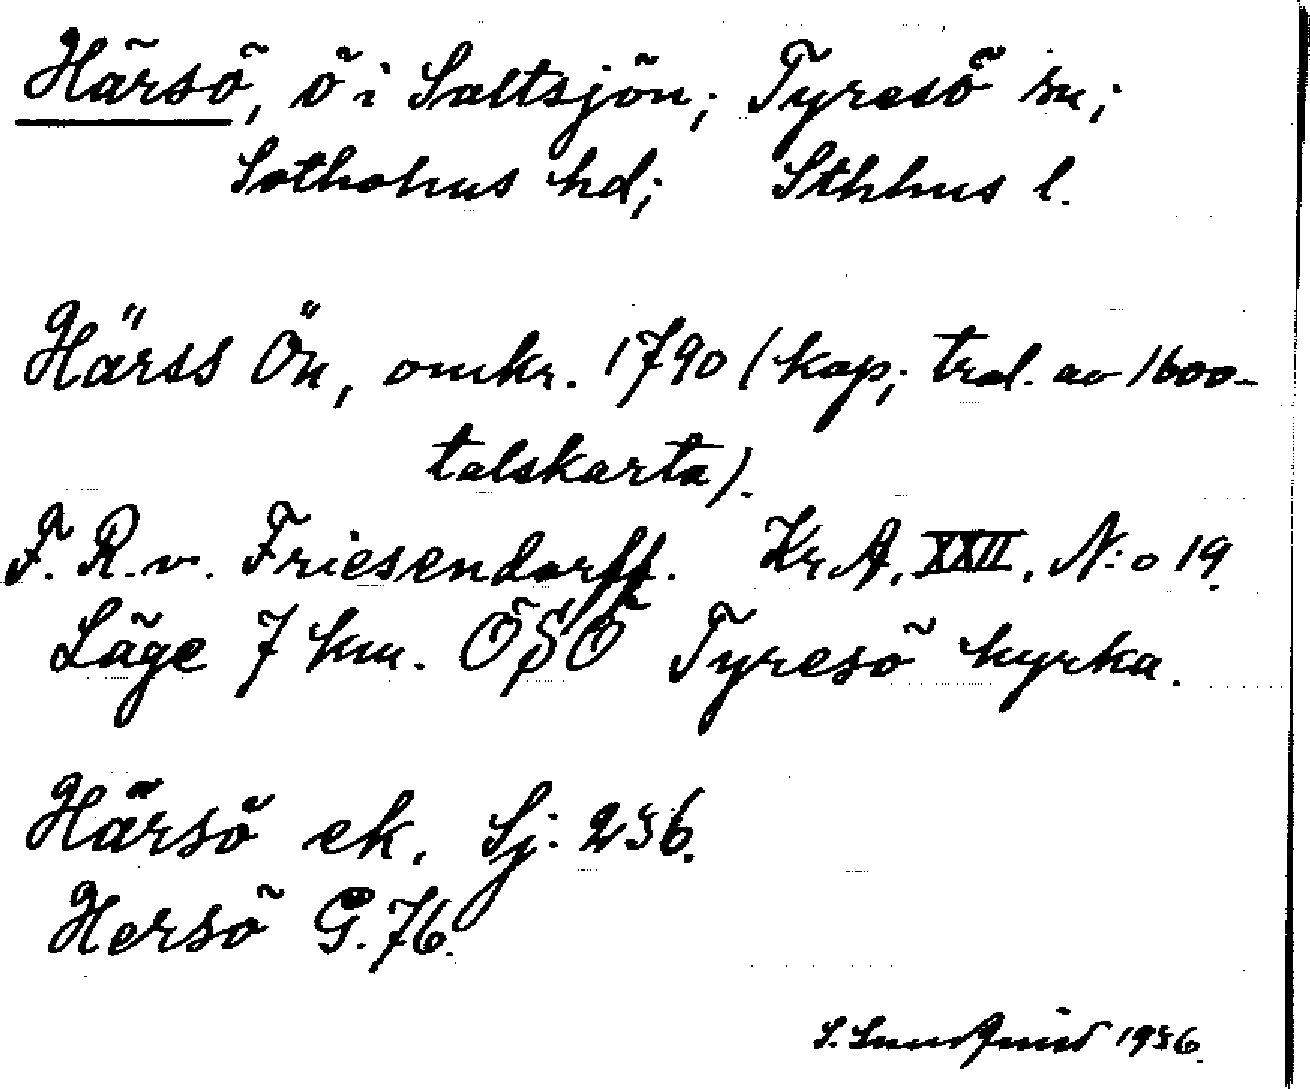 Härsö, ö i Saltsjön; Tyresö sn;
Sotholms hd; Sthlms l.
Härss Ön, omkr. 1790 (kop; trol. av 1600-
talskarta).
F. R. v. Friesendorff. Kr. A, XXII, N:o 19.
Läge 7 km. ÖSÖ Tyresö kyrka.
Härsö ek. Sj: 236.
Hersö G. 76.
S. Lundqvist 1936